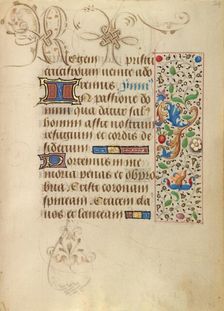 Regem
crucifixum venite ado
remus
In passione do
mini qua datur salus
homini sit nostrum
refugium et cordis de
siderium
Portemus in me
moria penas et obpro
bria Cristi coronam
spineam Crucem cla
uos et lanceam